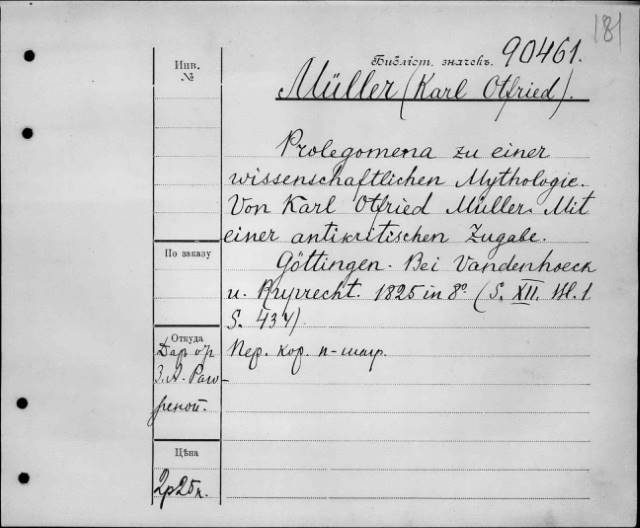 181
Инв.
№
Библіот. значекъ. 90461.
Müller (Karl Otfried).
Prolegomena zu einer
wissenschaftlichen Mythologie.
Von Karl Otfried Müller. Mit
einer antikritischen Zugabe.
По заказу
Göttingen. Bei Vandenhoeck
u. Ruprecht. 1825 in 8º. (S. XII. Bl. 1
S.
Откуда
Пер. кор. п-шагр.
Даръ
З. А. Раго-
зиной.
Цѣна
2р25к.